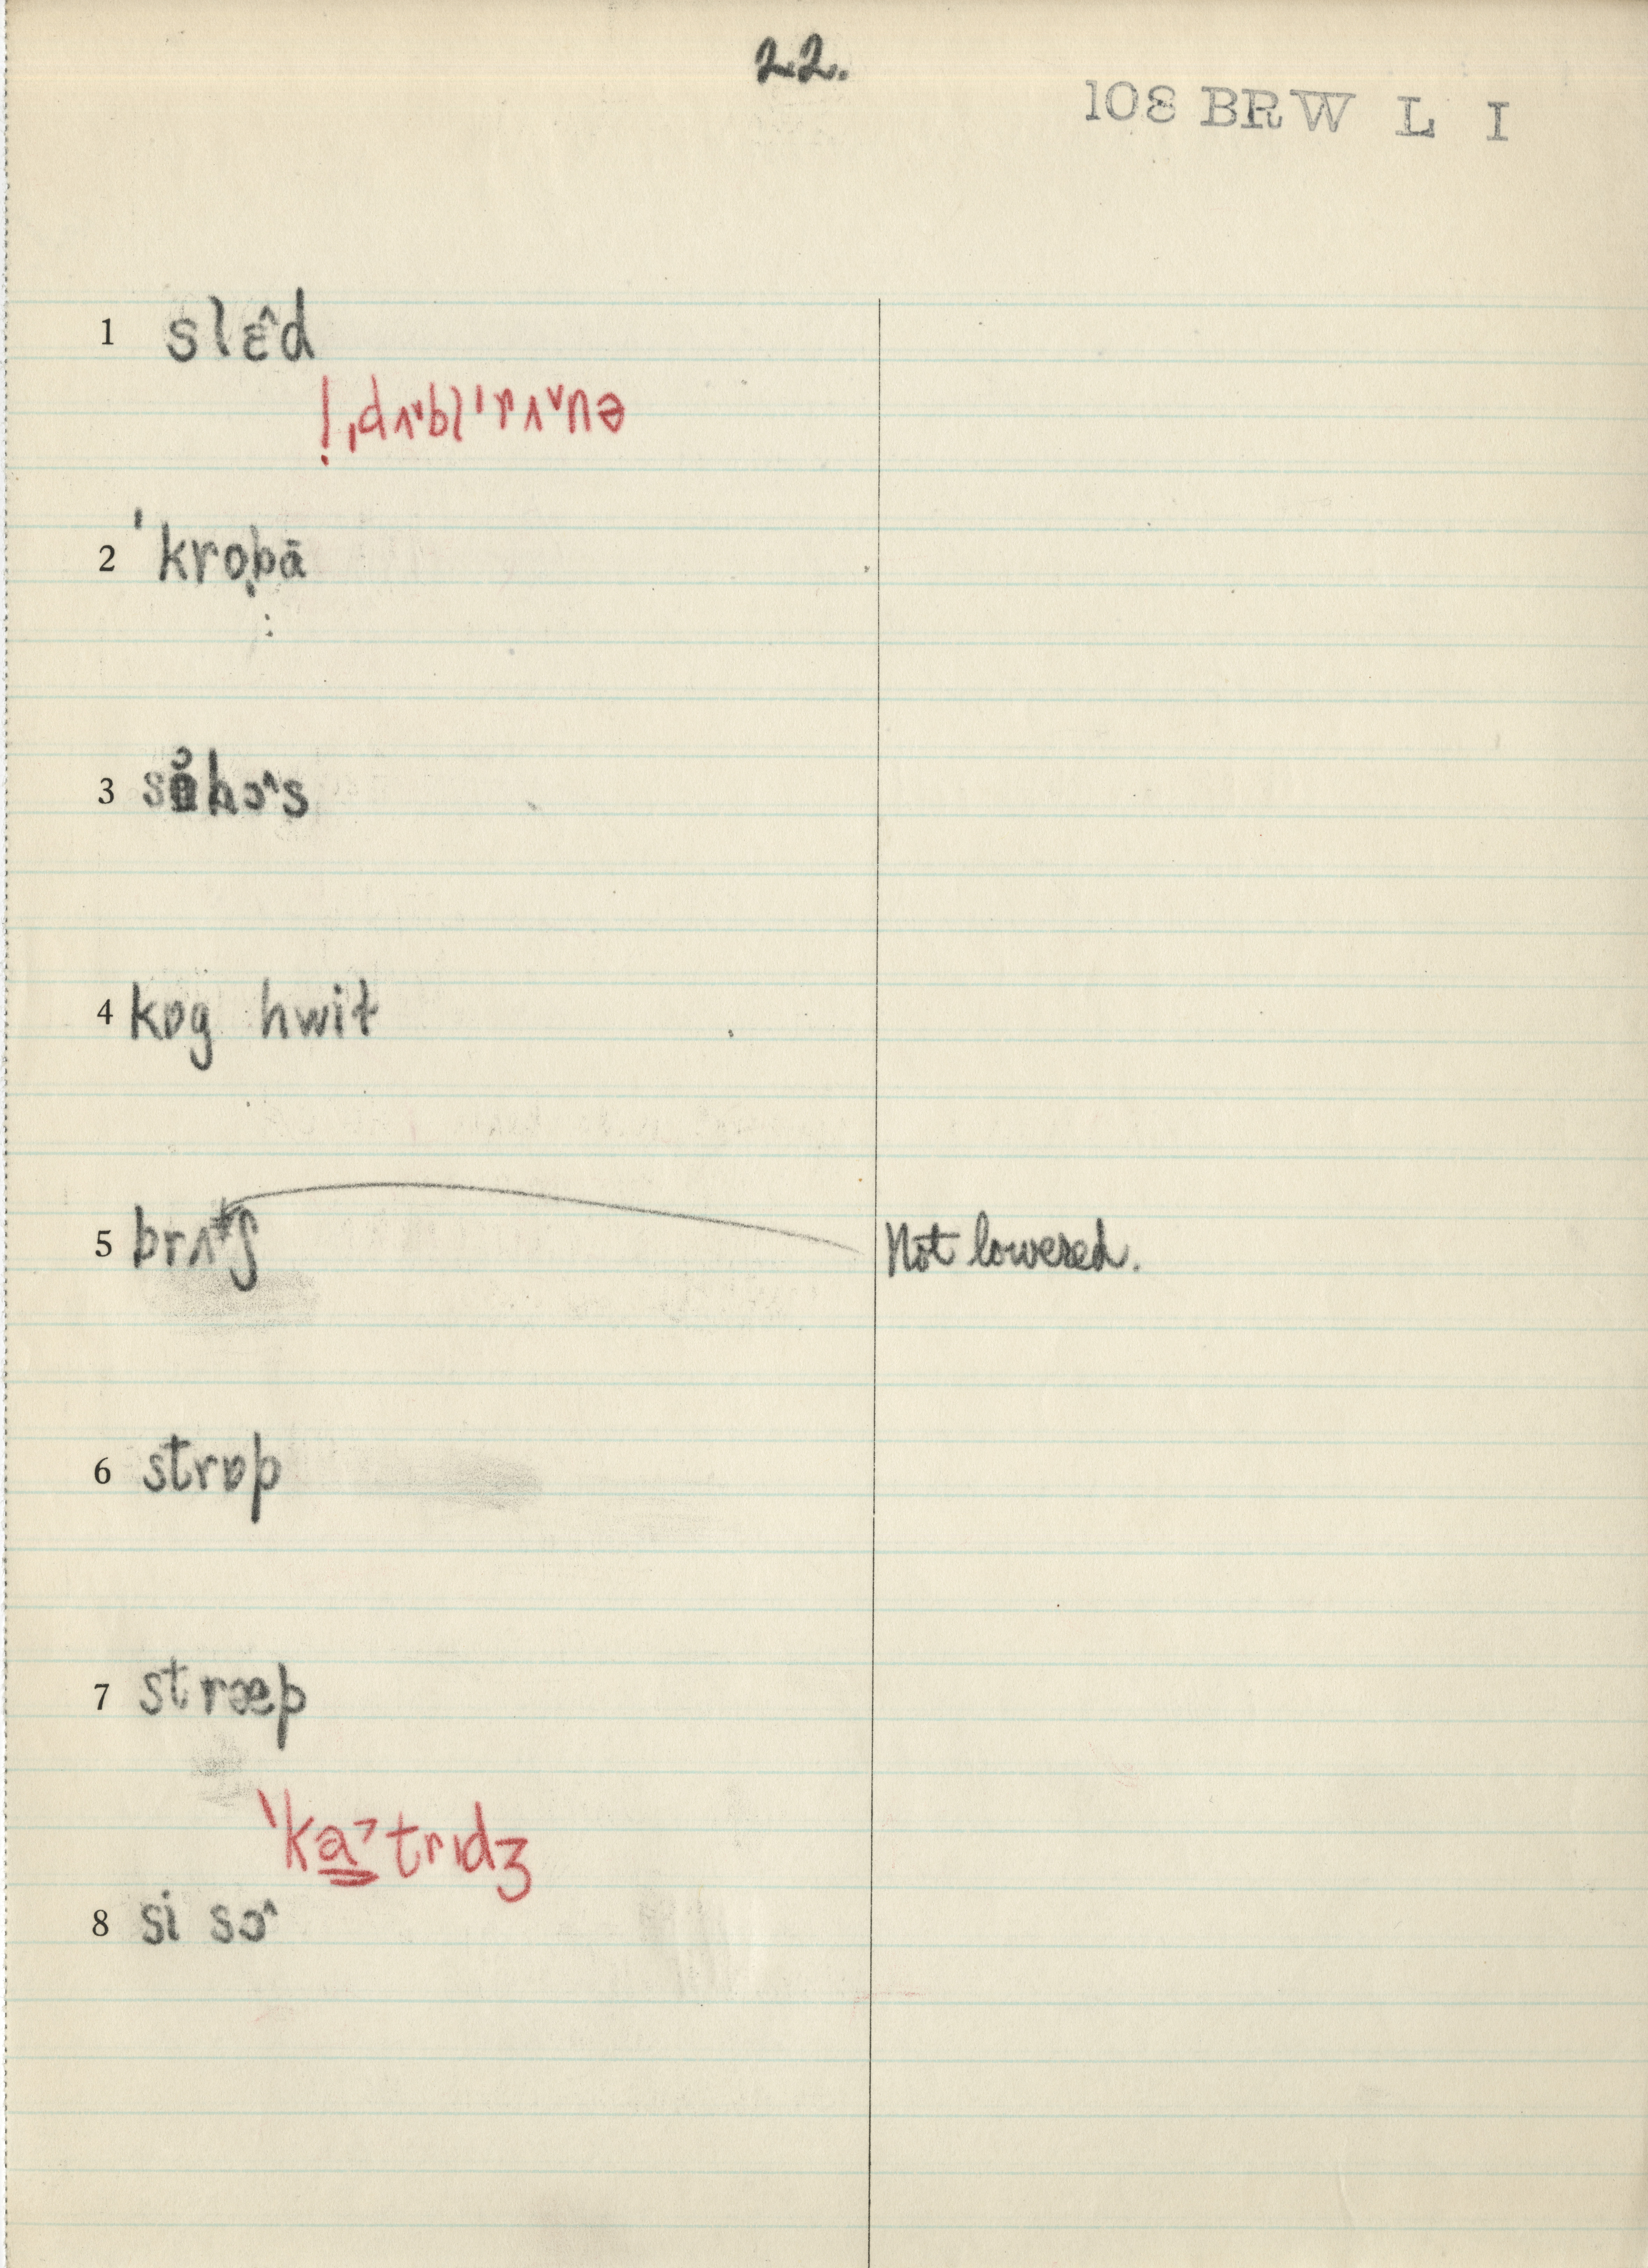 22.
108 BRW L I
1 slɛ^d
!ˌdʌ˅bl̩ˈrʌ˅nə
2 ˈkrobā
3 hɔ^s
4 kɒg hwit
5 brʌʃ Not lowered.
6 strɒp
7 stræp
ˈka̳˃trɪdʒ
8 si sɔ^